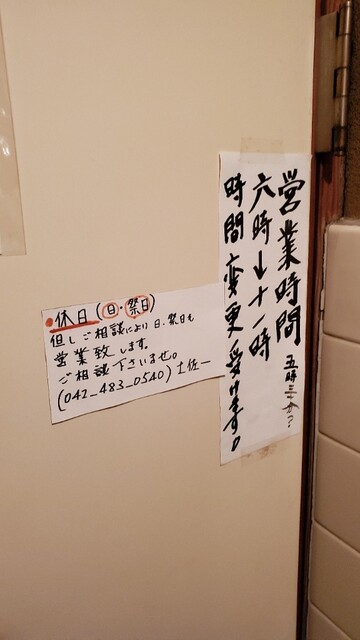 営業時間
六時↓十一時
時間変更受けます。
●休日(日・祭日)
但しご相談により日・祭日も
営業致します。
ご相談下さいませ。
(042-483-0540)土佐一